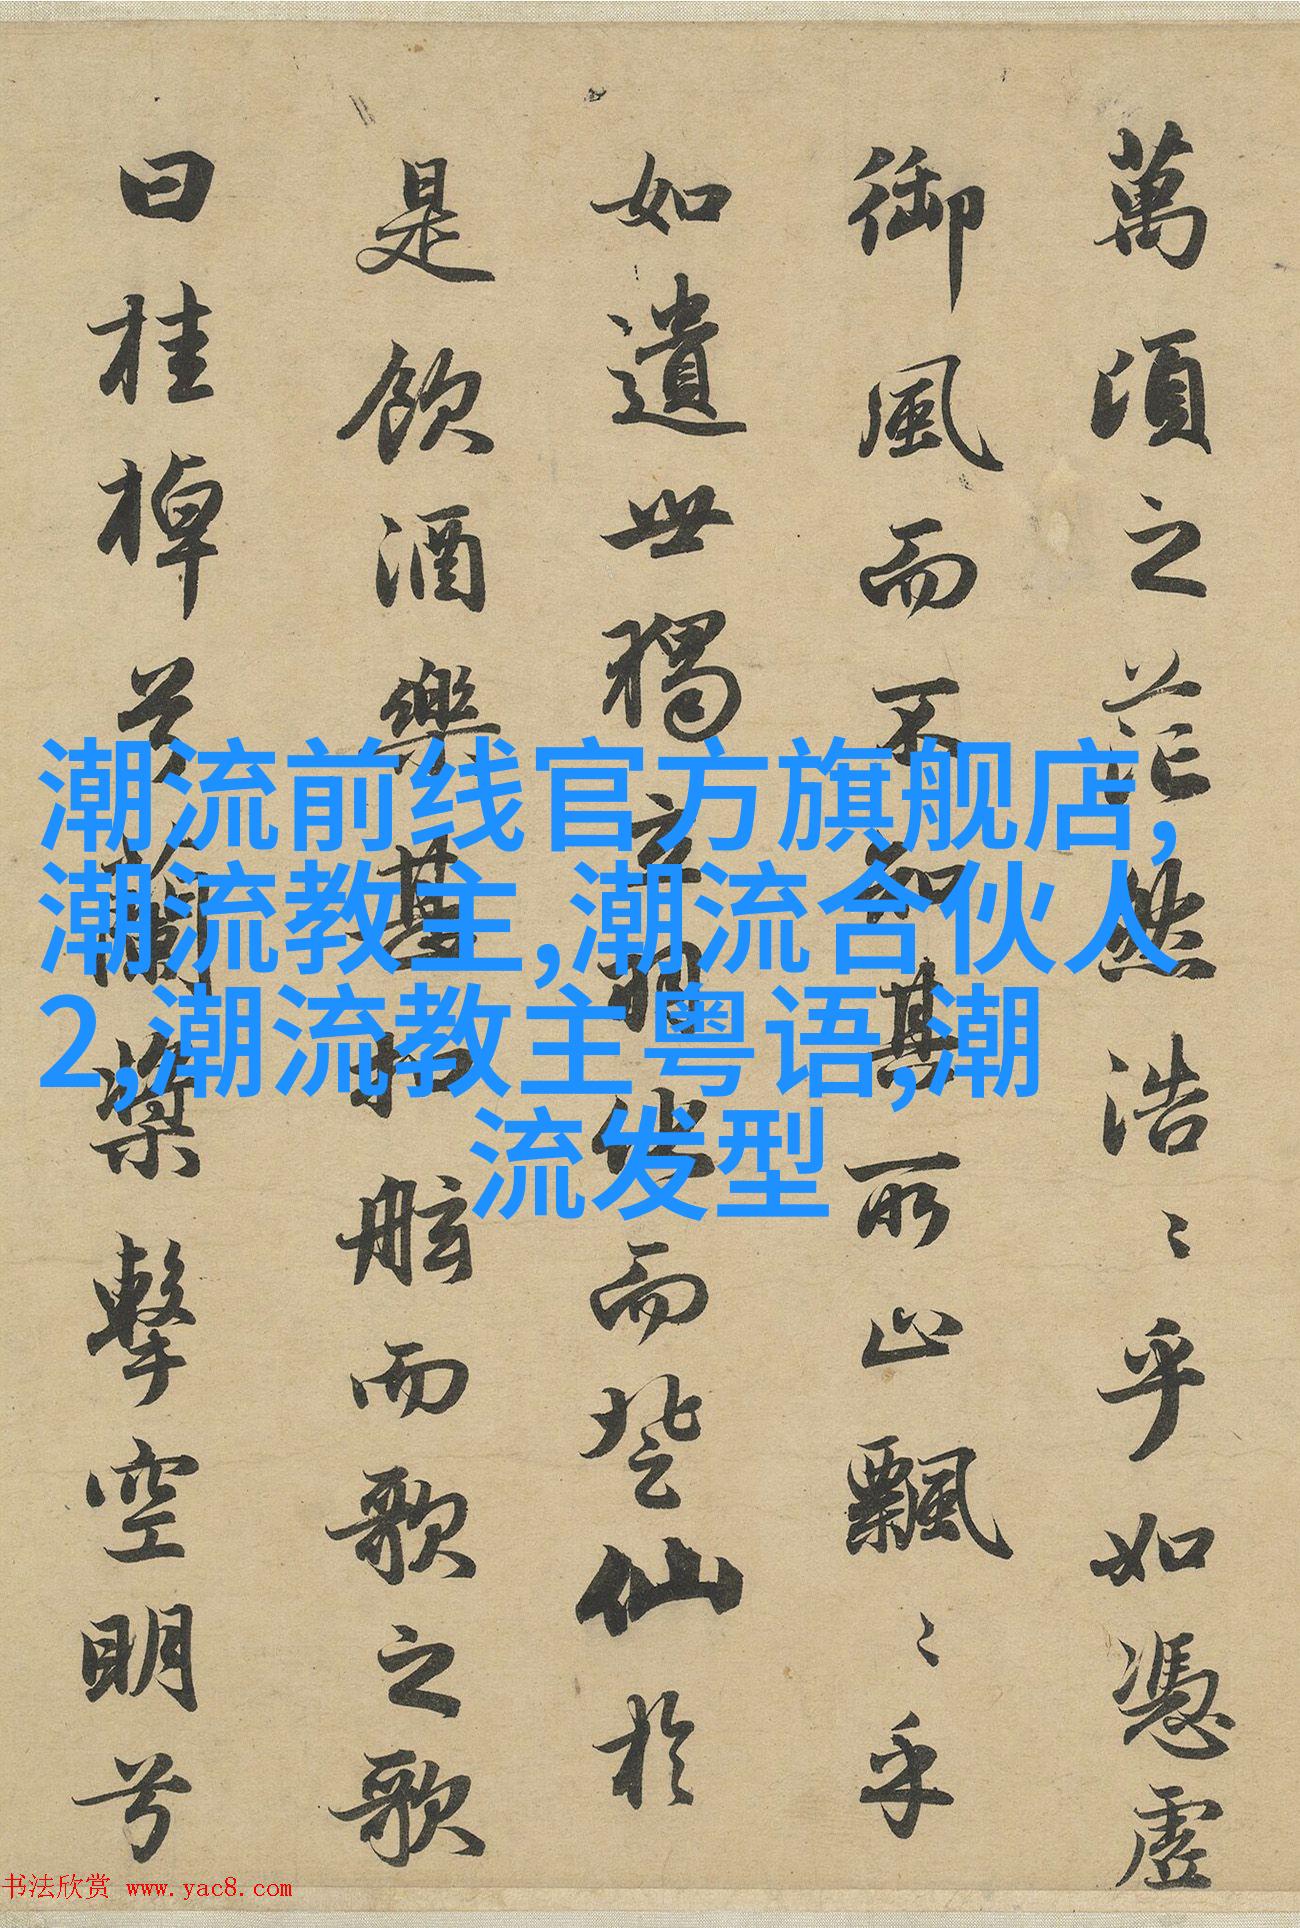 萬頃之茫然浩〻乎如憑虛
御風而不知其所止飄〻乎
如遺世獨立羽化而登仙於
是飲酒樂甚扣舷而歌之歌
曰桂棹兮蘭槳擊空明兮
潮流前线官方旗舰店,
潮流教主,潮流合伙人
2,潮流教主粤语,潮
流发型
书法欣赏 www.yac8.com